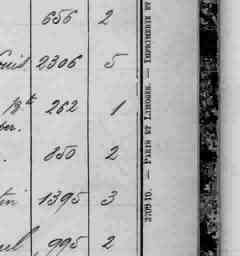 656 2
2306 5
Bte 262 1
850 2
1395 3
995 2
2709 10. — PARIS ET LIMOGES. — IMPRIMERIE ET